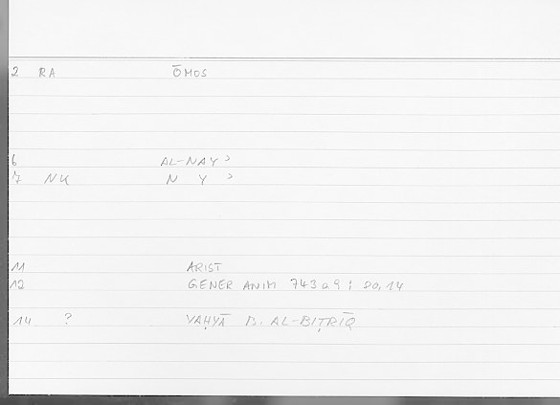 2 RA ŌMOS
6 AL-NAYʾ
7 NK N Y ʾ
11 ARIST
12 GENER ANIM 743 a 9 ; 80,14
14 ? YAḤYĀ B. AL-BIṬRĪQ